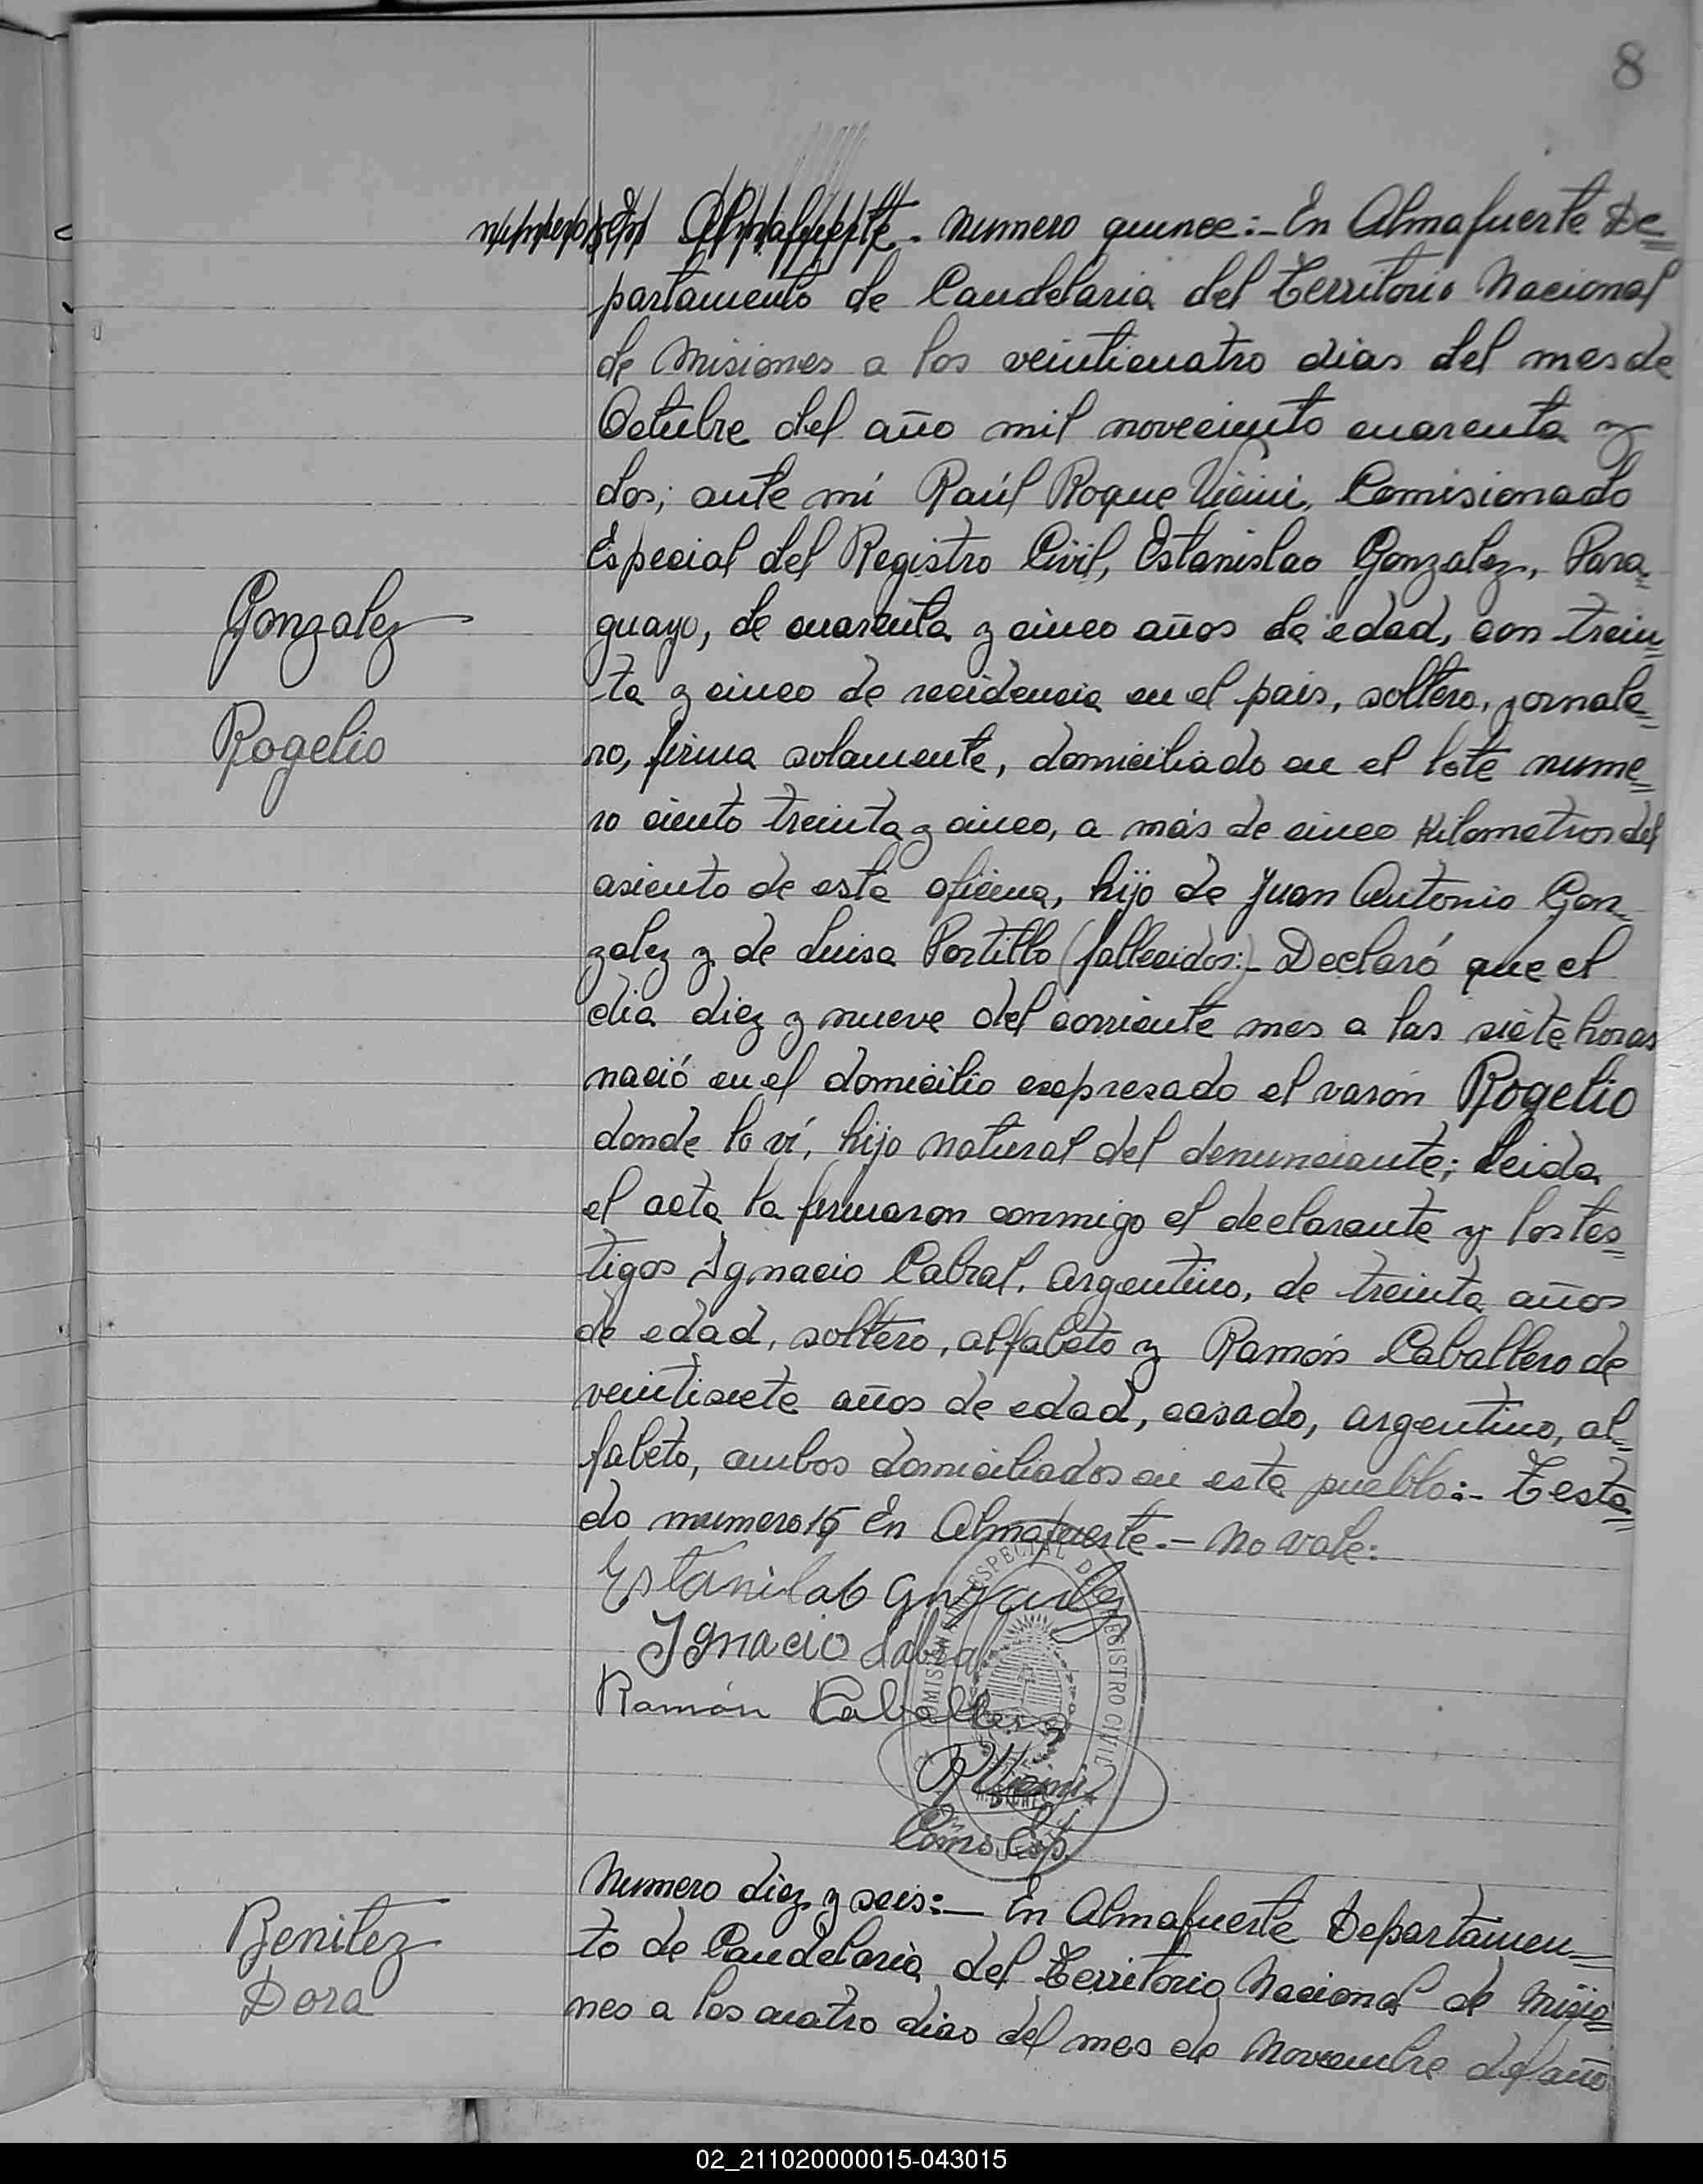 8
numero 15 En Almafuerte. Numero quince:- En Almafuerte De=
partamento de Candelaria del Territorio Nacional
de Misiones a los veinticuatro dias del mes de
Octubre del año mil noveciento cuarenta y
dos; ante mí Raúl Roque Vicini, Comisionado
Especial del Registro Civil, Estanislao Gonzalez, Para=
Gonzalez
guayo, de cuarenta y cinco años de edad, con trein=
ta y cinco de recidencia en el pais, soltero, jornale=
Rogelio
ro, firma solamente, domiciliado en el lote nume=
ro ciento treinta y cinco, a más de cinco Kilometros del
asiento de esta oficina, hijo de Juan Antonio Gon=
zalez y de Luisa Portillo (fallecidos:)- Declaró que el
dia diez y nueve del corriente mes a las siete horas
nació en el domicilio expresado el varón Rogelio
donde lo ví, hijo natural del denunciante; leida
el acta la firmaron conmigo el declarante y los tes=
tigos Ignacio Cabral, argentino, de treinta años
de edad, soltero, alfabeto y Ramón Caballero de
veintisiete años de edad, casado, argentino, al=
fabeto, ambos domiciliados en este pueblo:- Testa=
do numero 15 En Almafuerte.- No vale:
Estanilao
Ignacio Cabral
Ramón Caballero
COMISION ESPECIAL DEL REGISTRO CIVIL
RVicini
Comis Esp.
Numero diez y seis:- En Almafuerte Departamen=
Benitez
to de Candelaria del Territorio Nacional de Misio=
Dora
nes a los cuatro dias del mes de Noviembre del año
02_211020000015-043015